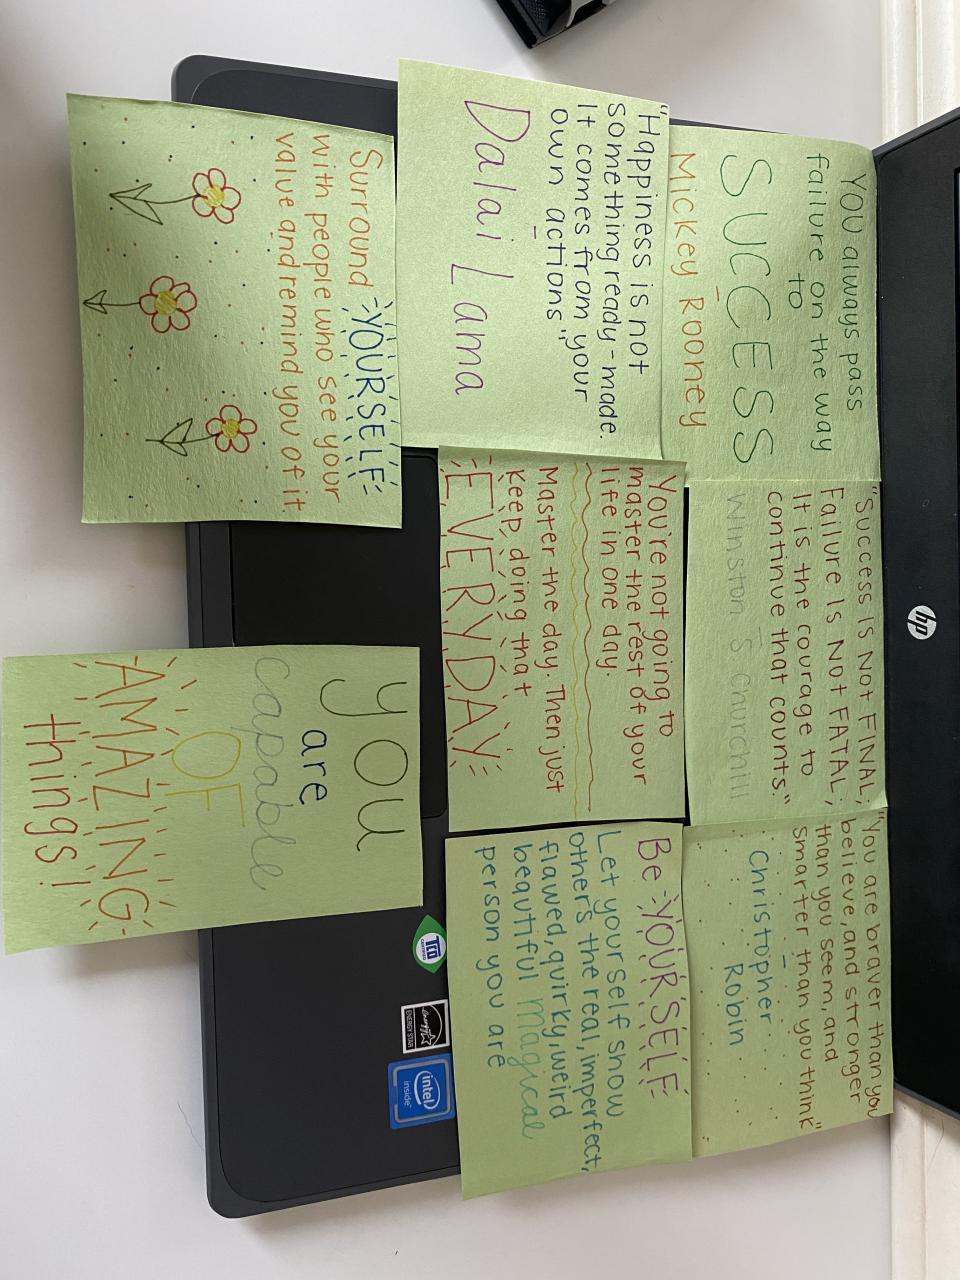 YOU always pass
failure on the way
to
SUCCESS
Mickey Rooney
"Success is Not FINAL;
Failure Is Not FATAL;
It is the courage to
continue that counts."
Winston S Churchill
"You are braver than you
believe, and stronger
than you seem, and
smarter than you think"
Christopher
Robin
"Happiness is not
something ready-made.
It comes from your
own actions"
Dalai Lama
You're not going to
master the rest of your
life in one day.
Master the day. Then just
Keep doing that
EVERYDAY
Be YOURSELF
Let yourself show
others the real, imperfect,
flawed, quirky, weird
beautiful magical
person you are
Surround YOURSELF
with people who see your
value and remind you of it.
YOU
are
capable
OF
AMAZING
things!
hp
TCO
CERTIFIED
energy
ENERGY STAR
intel
inside